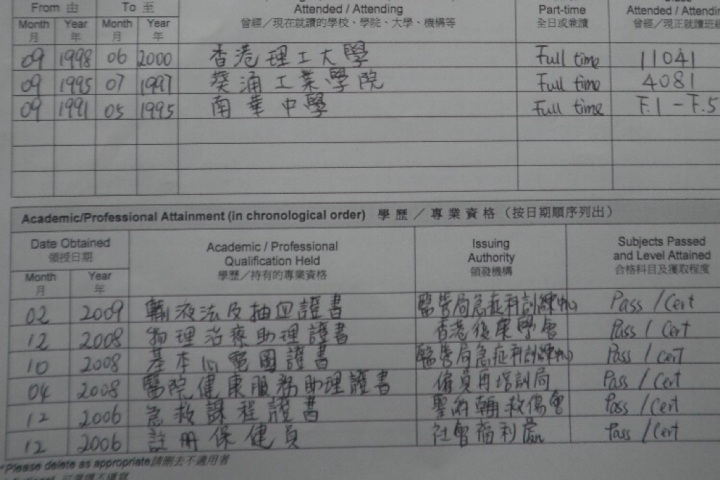 From 由 To 至 Attended / Attending Part-time Attended / Attending
Month Year Month Year 曾經／現在就讀的學校、學院、大學、機構等 全日或兼讀 曾經／現正就讀班級
月 年 月 年
09 1998 06 2000 香港理工大學 Full time 11041
09 1995 07 1997 葵涌工業學院 Full time 4081
09 1991 05 1995 南華中學 Full time F.1 - F.5
Academic/Professional Attainment (in chronological order) 學歷／專業資格（按日期順序列出）
Date Obtained Academic / Professional Issuing Subjects Passed
領授日期 Qualification Held Authority and Level Attained
Month Year 學歷／持有的專業資格 領發機構 合格科目及獲取程度
月 年
02 2009 輸液法及抽血證書 醫管局急症科訓練中心 Pass / Cert
12 2008 物理治療助理證書 香港復康學會 Pass / Cert
10 2008 基本心電圖證書 醫管局急症科訓練中心 Pass / Cert
04 2008 醫院健康服務助理證書 僱員再培訓局 Pass / Cert
12 2006 急救課程證書 聖約翰救傷會 Pass / Cert
12 2006 註冊保健員 社會福利處 Pass / Cert
*Please delete as appropriate 請刪去不適用者